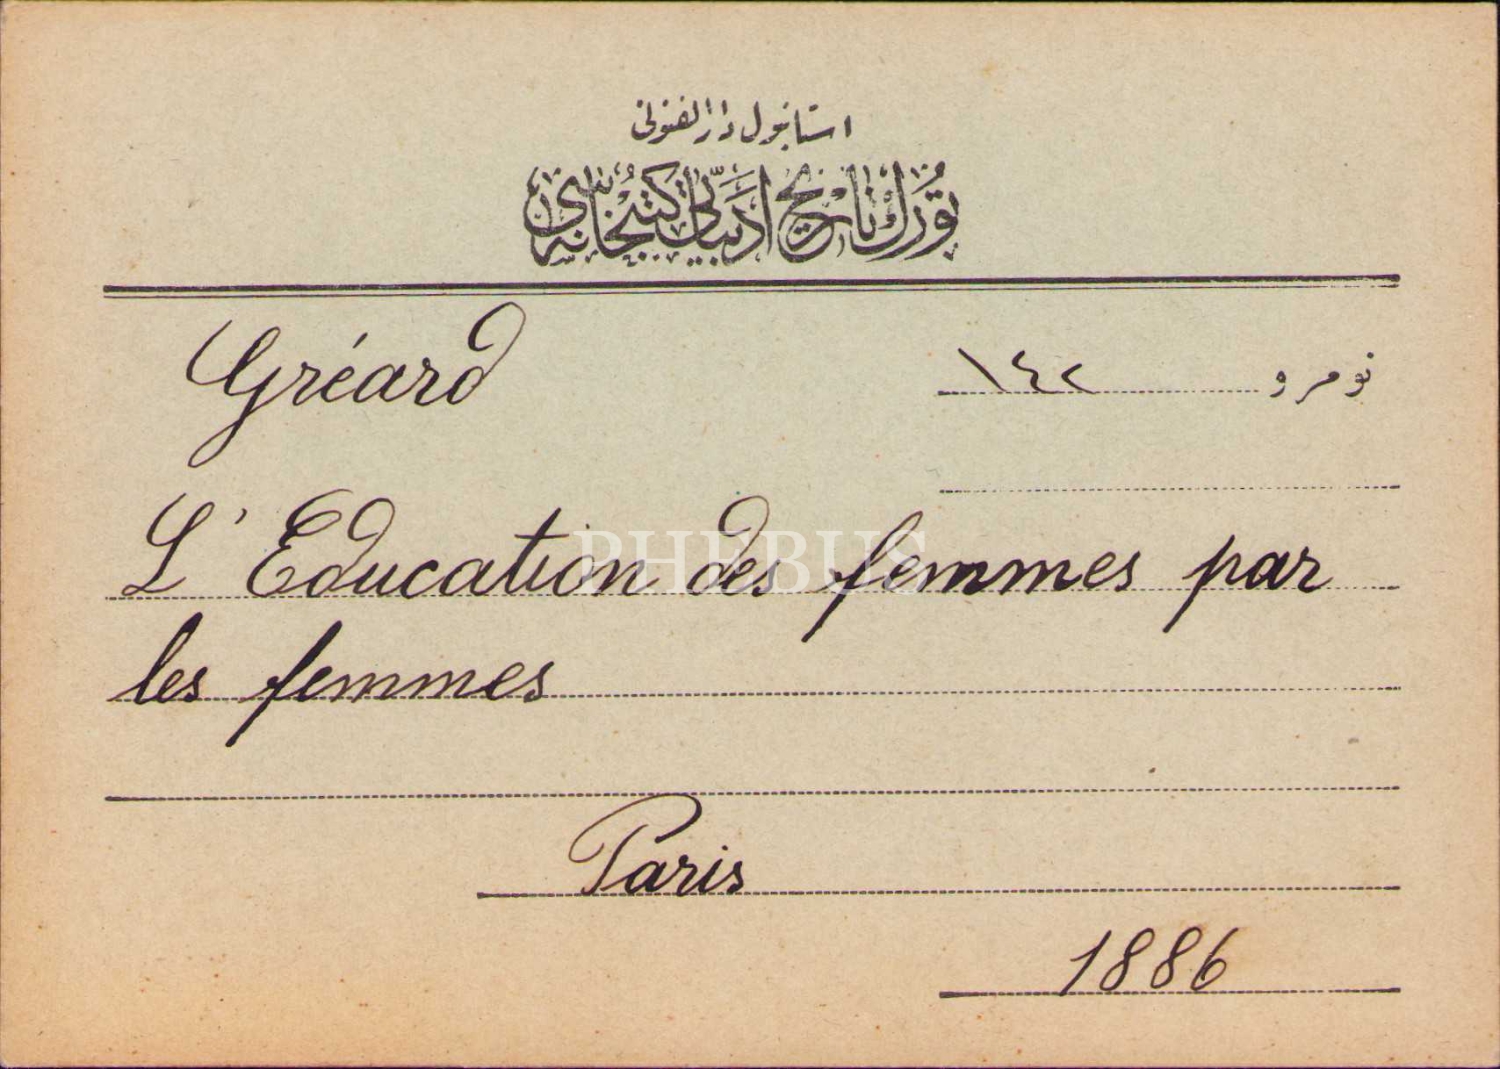 استانبول دار الفنونی
تورك تاریخ ادبیاتی كتبخانه سی
Gréard
نومرو ١٤٢
L'Education des femmes par
les femmes
PHEBUS
Paris
1886